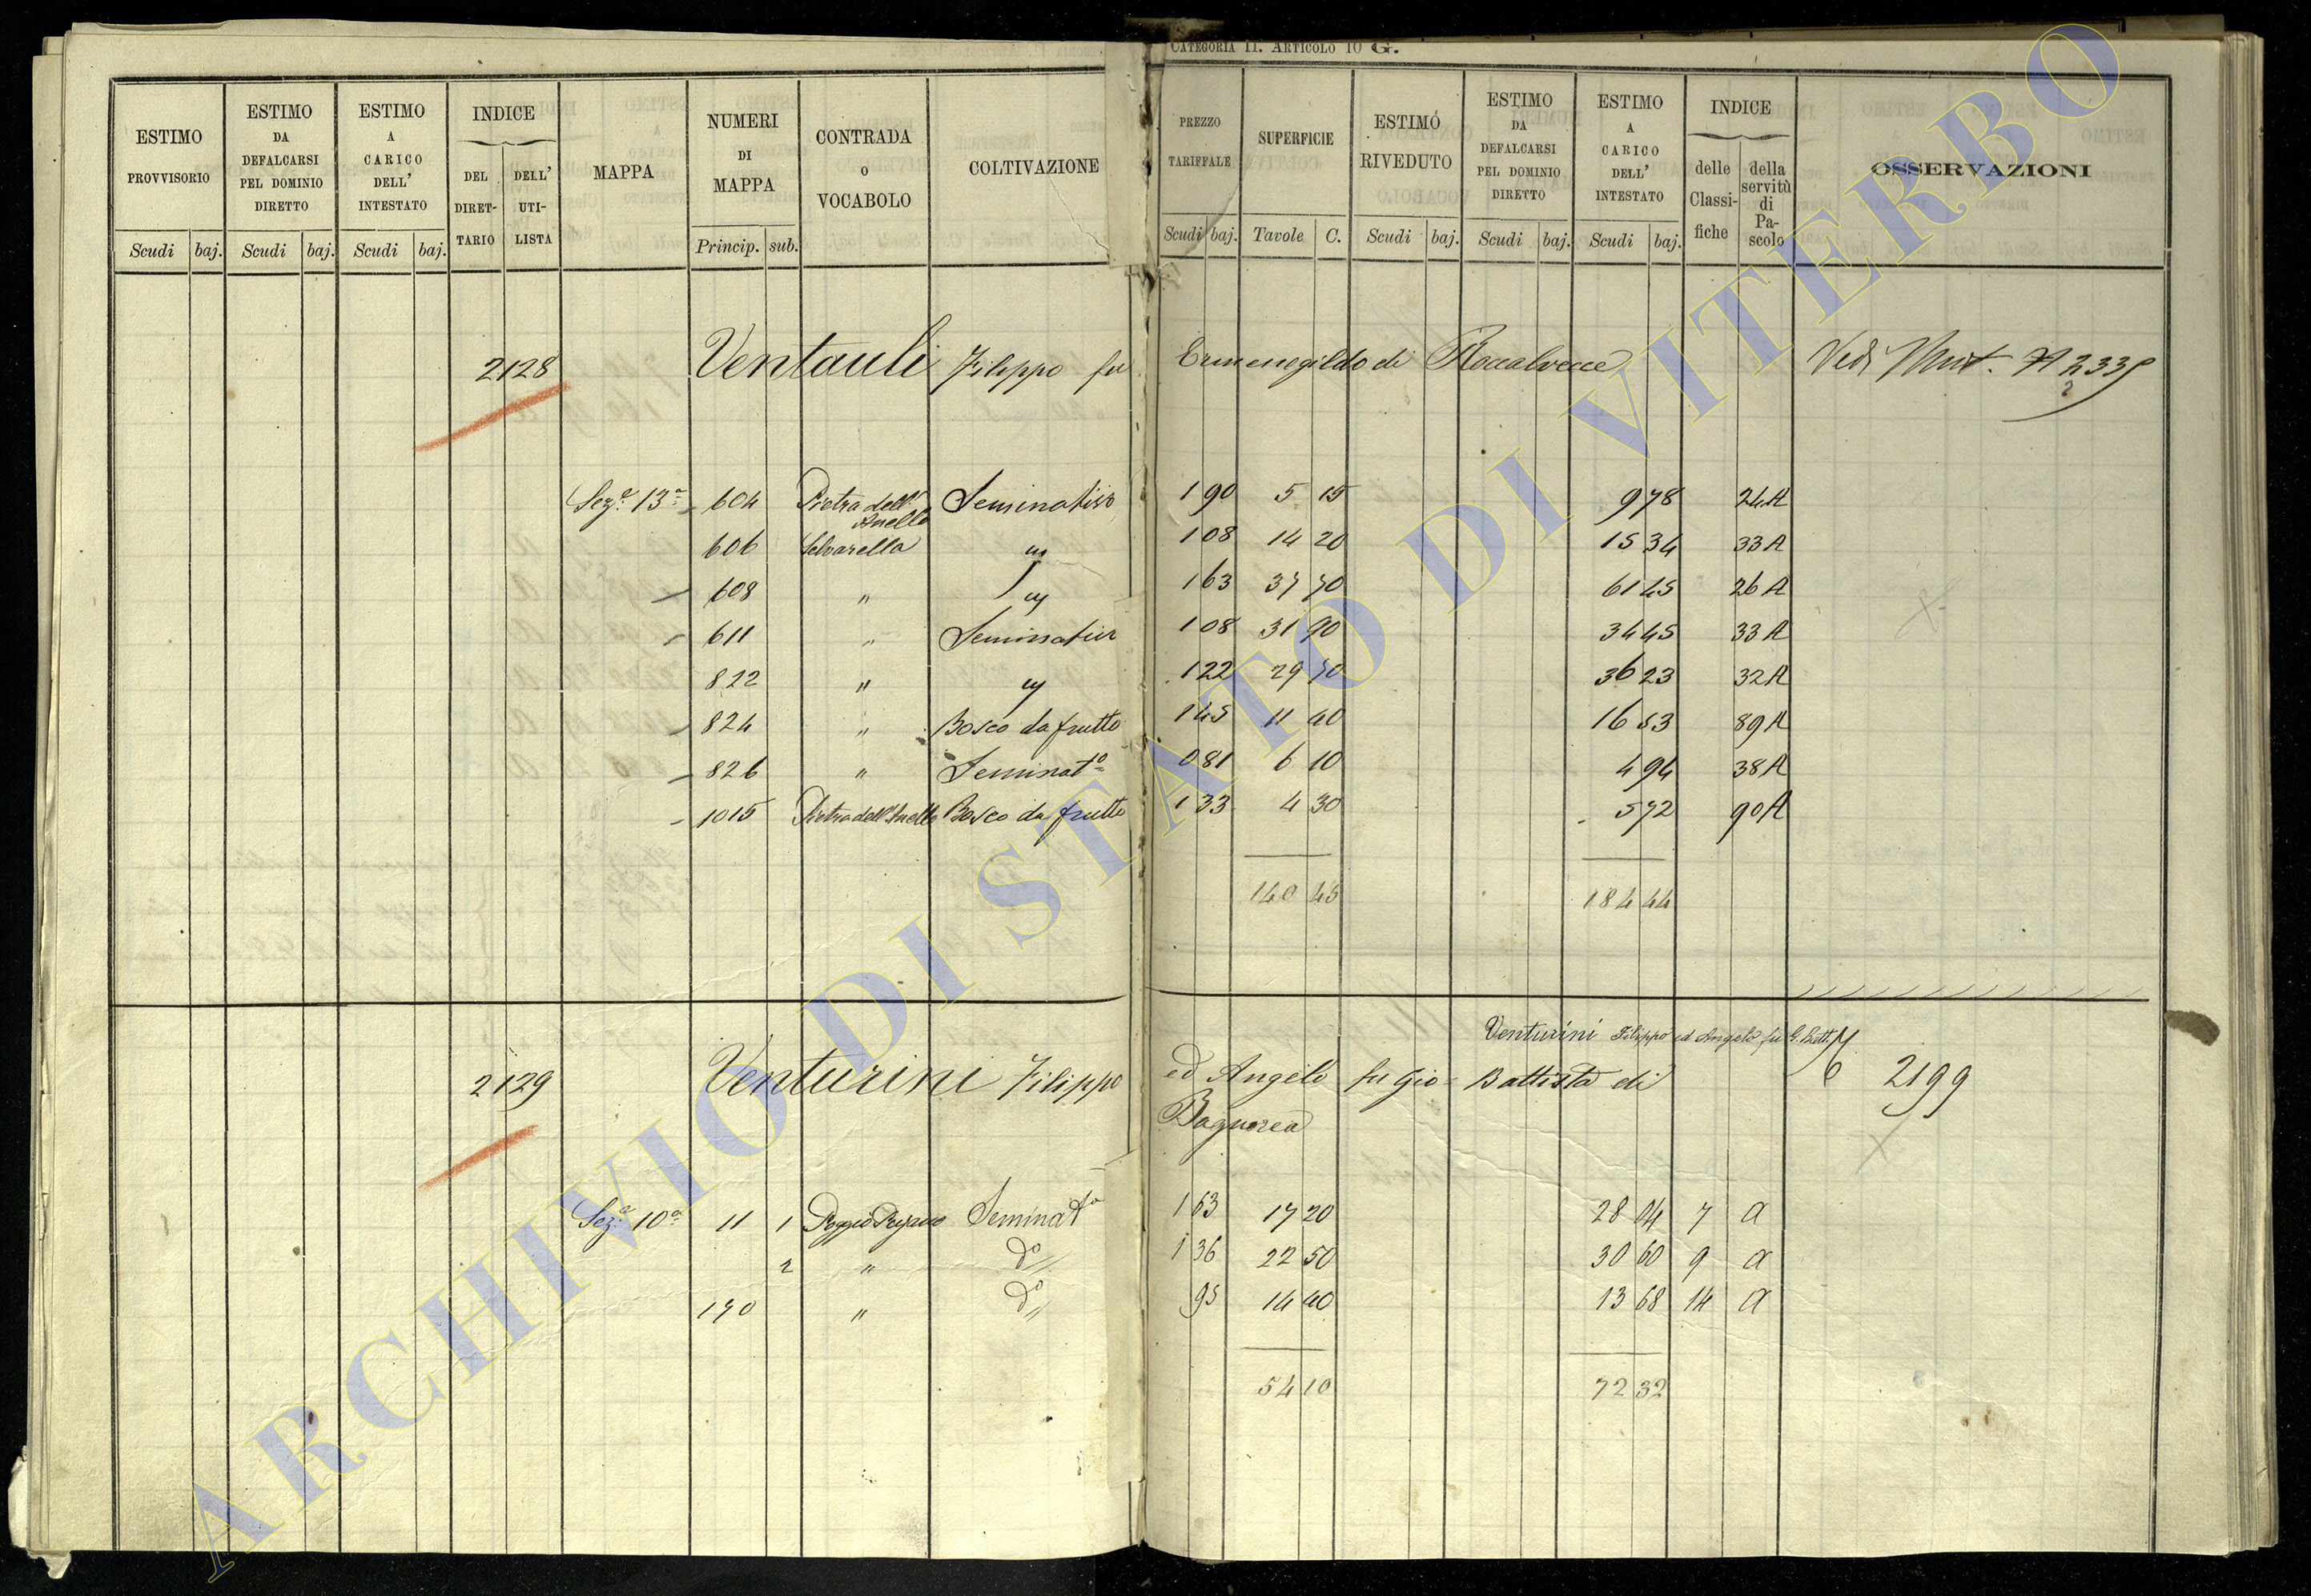 CATEGORIA II. ARTICOLO 10 G.
ESTIMO PROVVISORIO
Scudi baj.
ESTIMO DA DEFALCARSI PEL DOMINIO DIRETTO
Scudi baj.
ESTIMO A CARICO DELL' INTESTATO
Scudi baj.
INDICE
DEL DIRET-TARIO
DELL' UTI-LISTA
MAPPA
NUMERI DI MAPPA
Princip. sub.
CONTRADA O VOCABOLO
COLTIVAZIONE
PREZZO TARIFFALE
Scudi baj.
SUPERFICIE
Tavole C.
ESTIMO RIVEDUTO
Scudi baj.
ESTIMO DA DEFALCARSI PEL DOMINIO DIRETTO
Scudi baj.
ESTIMO A CARICO DELL' INTESTATO
Scudi baj.
INDICE
delle Classi-fiche
della servitù di Pa-scolo
OSSERVAZIONI
2128 Ventauli Filippo fu Ermenegildo di Roccalvecce Vedi Mut.
Sez.e 13a 604 Pietra dell' Anello Seminativo 1 90 5 15 9 78 24 A
606 Selvarella " 1 08 14 20 15 34 33 A
608 " " 1 63 37 70 61 45 26 A
611 " Seminativo 1 08 31 90 34 45 33 A
822 " " 1 22 29 70 36 23 32 A
824 " Bosco da frutto 1 45 11 40 16 53 89 A
826 " Seminato 0 81 6 10 4 94 38 A
1015 Pietra dell'Anello Bosco da frutto 1 33 4 30 5 72 90 A
140 45 184 44
Venturini Filippo ed Angelo fu G. Batt.
2129 Venturini Filippo ed Angelo fu Gio = Battista di 2199
Bagnorea
Sez.e 10a 11 1 Poggio Seminato 1 63 17 20 28 04 7 a
2 " do " 1 36 22 50 30 60 9 a
170 " do " 95 14 40 13 68 14 a
54 10 72 32
ARCHIVIO DI STATO DI VITERBO